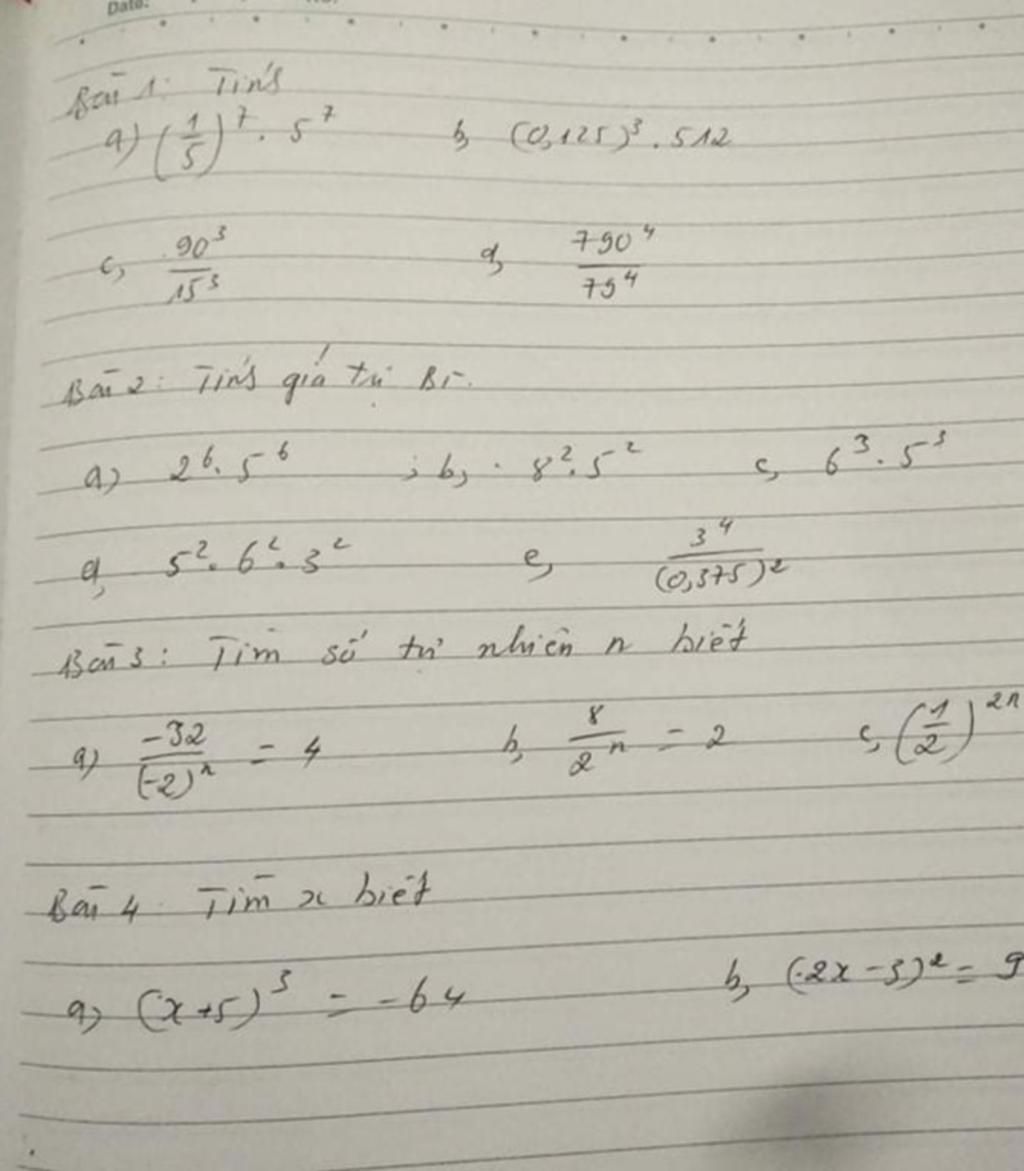 Date:
Bài 1: Tính
a) (1/5)^7 . 5^7 b, (0,125)^3 . 512
c, 90^3/15^3 d, 790^4/79^4
Bài 2: Tính giá trị BT.
a) 2^6 . 5^6 ; b, 8^2 . 5^2 c, 6^3 . 5^3
d, 5^2 . 6^2 . 3^2 e, 3^4/(0,375)^2
Bài 3: Tìm số tự nhiên n biết
a) -32/(-2)^n = 4 b, 8/2^n = 2 c, (1/2)^2n
Bài 4: Tìm x biết
a) (x+5)^3 = -64 b, (2x-3)^2 = 9